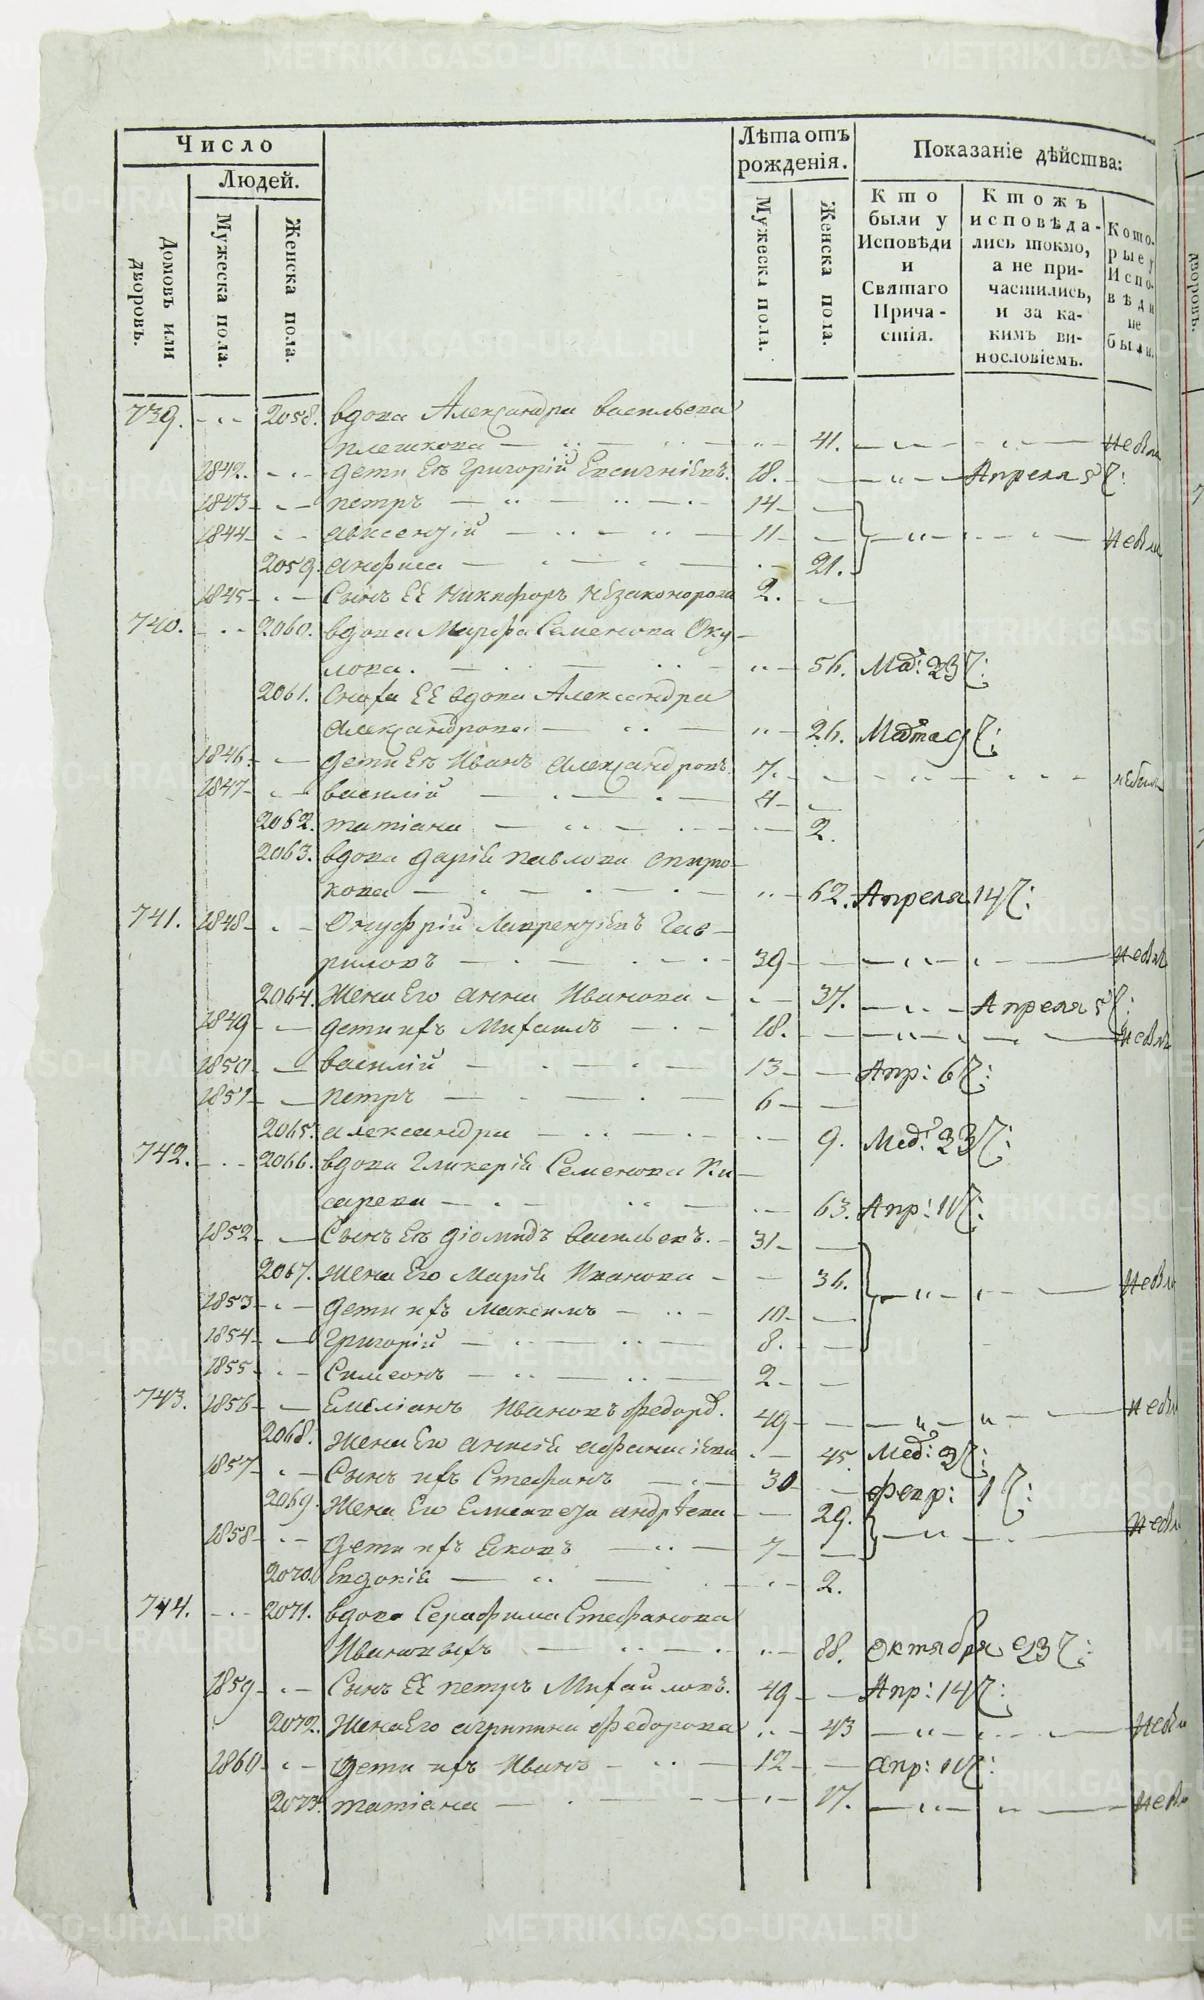 METRIKI.GASO-URAL.RU
Число
Людей.
Домовъ или дворовъ.
Мужеска пола.
Женска пола.
Лѣта отъ рожденія.
Мужеска пола.
Женска пола.
Показаніе дѣйства:
Кто были у Исповѣди и Святаго Причастія.
Ктожъ исповѣдались токмо, а не причастились, и за какимъ винословіемъ.
Которые у Исповѣди не были.
739. 2058. вдова Александра васильева
плешкова 41.
1842. дети Еѣ Григорій 18. Апреля 5
1843 петръ 14
1844 авксентій 11
2059. анфиса 21.
1845 Сынъ ЕЕ Никифоръ 2.
740. 2060. вдова Марфа Семенова Оку
лова. 56. Мар: 23
2061. Сноха ЕЕ вдова Александра
Александрова 26. Марта 9
1846 дети Еѣ Иванъ Александровъ. 7.
1847 василій 4
2062. татіана 2.
2063. вдова дарія павлова
кова 62. Апреля 14
741. 1848 Онуфрій Лаврентіевъ Гав
риловъ 39
2064. Жена Его анна Иванова 37. Апреля 5
1849 дети ихъ Михаилъ 18.
1850 василій 13 Апр: 6
1851 петръ 6
2065. александра 9. Мар: 23
742. 2066. вдова Гликерія Семенова Пи
сарева 63. Апр: 11
1852 Сынъ Еѣ діомидъ васильевъ. 31
2067. Жена Его Марія Иванова 36.
1853 дети ихъ Максимъ 10
1854 Григорій 8.
1855 Симеонъ 2
743. 1856 Емеліанъ Ивановъ 49
2068. Жена Его 45.
1857 Сынъ ихъ Стефанъ 30 февр: 1
2069. Жена Его Елисавета андрѣева 29.
1858 дети ихъ Яковъ 7
2070. Евдокія 2.
744. 2071. вдова Серафима Стефанова
Ивановыхъ 88. Октября 23
1859 Сынъ ЕЕ петръ Михайловъ. 49 Апр: 14
2072. Жена Его агрипина Федорова 43
1860 дети ихъ Иванъ 12 апр: 10
2073. татіана 17.